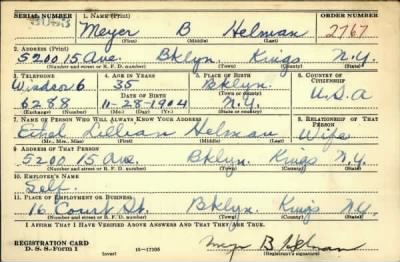 SERIAL NUMBER 1. NAME (Print) ORDER NUMBER
Meyer B Helman 2767
(First) (Middle) (Last)
2. ADDRESS (Print)
5200 15 Ave. Bklyn Kings N.Y.
(Number and street or R. F. D. number) (Town) (County) (State)
3. TELEPHONE 4. AGE IN YEARS 5. PLACE OF BIRTH 6. COUNTRY OF CITIZENSHIP
Windsor 6 35 Bklyn.
DATE OF BIRTH (Town or county)
6288 11-28-1904 N.Y. U.S.A
(Exchange) (Number) (Mo.) (Day) (Yr.) (State or country)
7. NAME OF PERSON WHO WILL ALWAYS KNOW YOUR ADDRESS 8. RELATIONSHIP OF THAT PERSON
Ethel Lillian Helman Wife
(Mr., Mrs., Miss) (First) (Middle) (Last)
9. ADDRESS OF THAT PERSON
5200 15 Ave. Bklyn. Kings N.Y.
(Number and street or R. F. D. number) (Town) (County) (State)
10. EMPLOYER'S NAME
Self.
11. PLACE OF EMPLOYMENT OR BUSINESS
16 Court St. Bklyn. Kings N.Y.
(Number and street or R. F. D. number) (Town) (County) (State)
I AFFIRM THAT I HAVE VERIFIED ABOVE ANSWERS AND THAT THEY ARE TRUE.
REGISTRATION CARD
D. S. S. Form 1 (over) 16-17105 Meyer B Helman